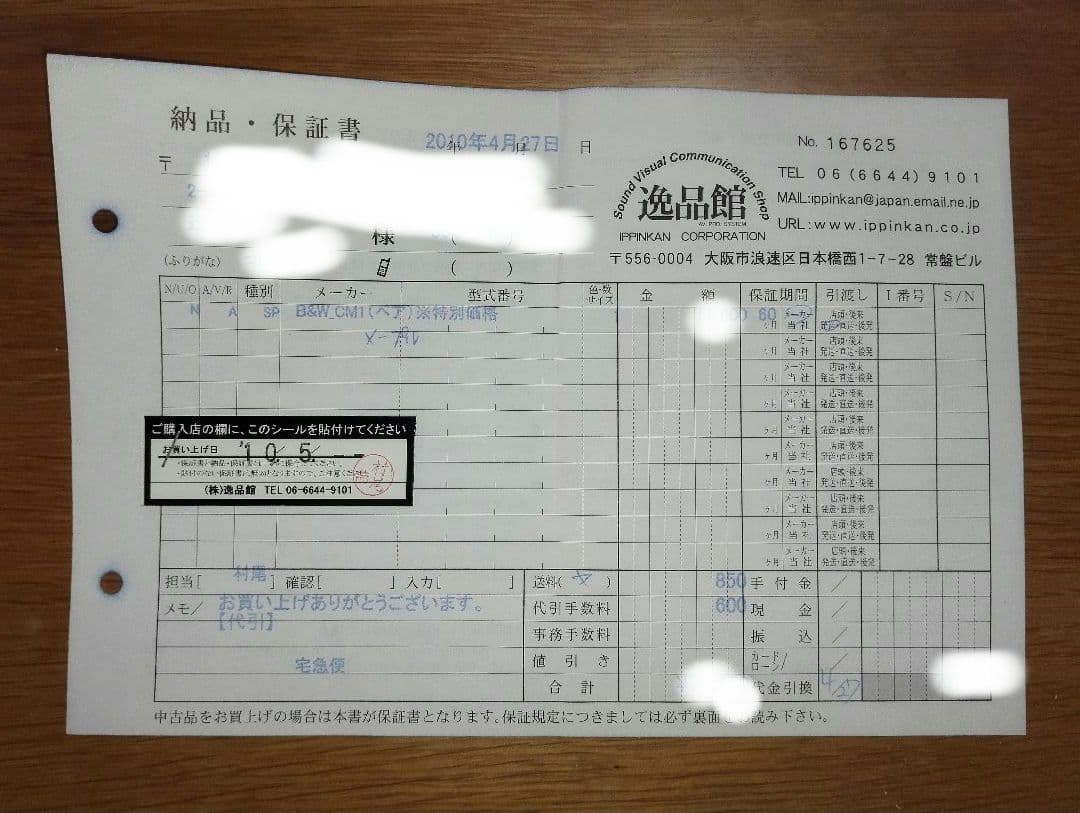 納品・保証書
2010年4月27日
年 月 日
No. 167625
〒
Sound Visual Communication Shop
逸品館
IPPINKAN CORPORATION
TEL 06(6644)9101
MAIL:ippinkan@japan.email.ne.jp
URL:www.ippinkan.co.jp
〒556-0004 大阪市浪速区日本橋西1-7-28 常盤ビル
様 ( )
(ふりがな) ( )
N/U/O A/V/R 種別 メーカー 型式番号 色・数 サイズ 金 額 保証期間 引渡し I番号 S/N
N A SP B&W CM1(ペア)※特別価格 00 60 ヶ月 メーカー 当社 店頭・後来 発送・直送・後発
メープル
ヶ月 メーカー 当社 店頭・後来 発送・直送・後発
ヶ月 メーカー 当社 店頭・後来 発送・直送・後発
ヶ月 メーカー 当社 店頭・後来 発送・直送・後発
ヶ月 メーカー 当社 店頭・後来 発送・直送・後発
ヶ月 メーカー 当社 店頭・後来 発送・直送・後発
ヶ月 メーカー 当社 店頭・後来 発送・直送・後発
ヶ月 メーカー 当社 店頭・後来 発送・直送・後発
ヶ月 メーカー 当社 店頭・後来 発送・直送・後発
ヶ月 メーカー 当社 店頭・後来 発送・直送・後発
ご購入店の欄に、このシールを貼付けてください
お買い上げ日 '10.5.--
(株)逸品館 TEL 06-6644-9101
担当[ 村尾 ] 確認[ ] 入力[ ]
メモ/ お買い上げありがとうございます。
[代引]
宅急便
送料( ) 850 手付金 /
代引手数料 600 現金 /
事務手数料 振込 /
値引き カード ローン/ /
合計 代金引換 4/27
中古品をお買上げの場合は本書が保証書となります。保証規定につきましては必ず裏面を お読み下さい。